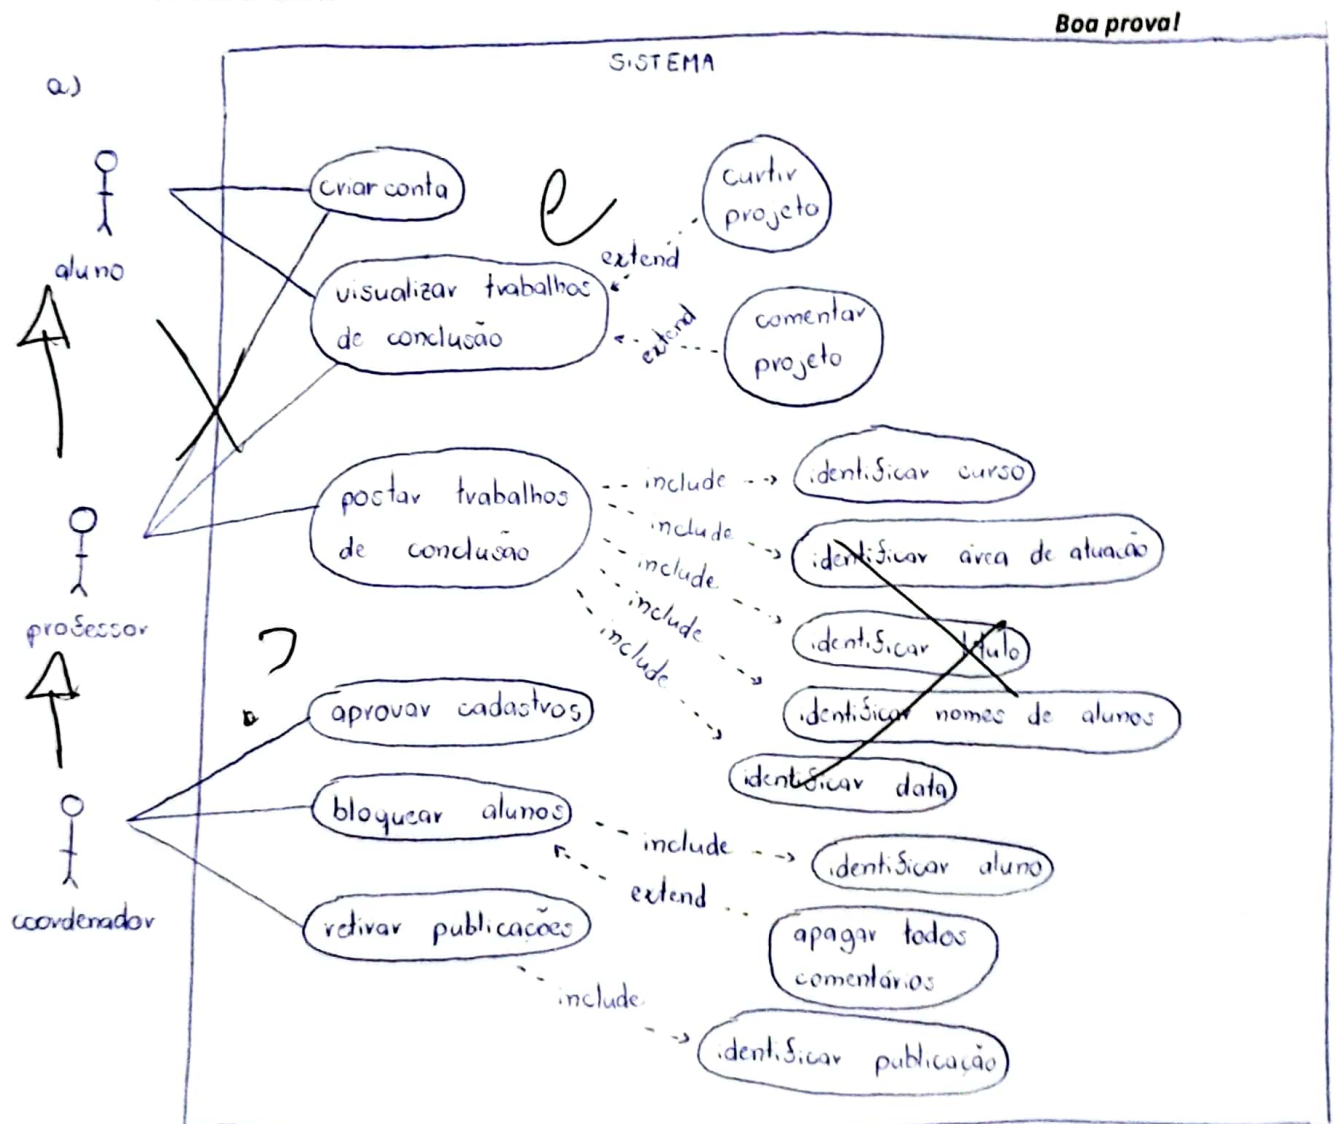 Boa prova!
SISTEMA
a)
aluno
criar conta
curtir
projeto
extend
visualizar trabalhos
de conclusão
extend
comentar
projeto
professor
postar trabalhos
de conclusão
include
identificar curso
include
identificar área de atuação
include
identificar título
include
identificar nomes de alunos
include
identificar data
?
coordenador
aprovar cadastros
bloquear alunos
include
identificar aluno
extend
apagar todos
comentários
retirar publicações
include
identificar publicação